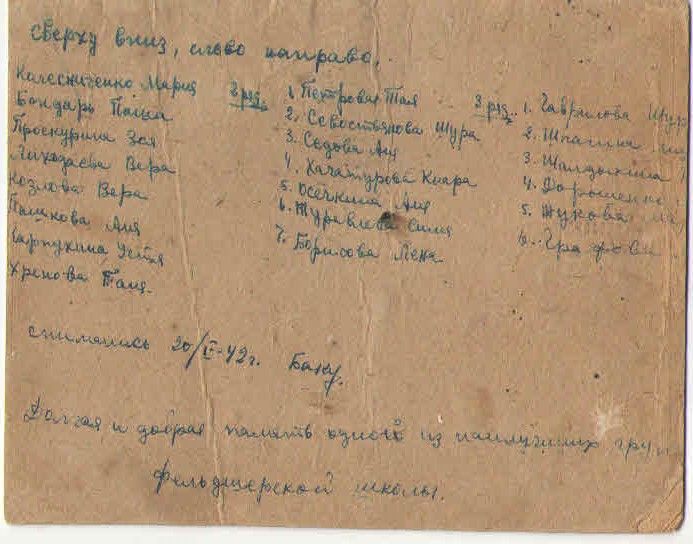 Сверху вниз, слево направо.
Калесниченко Мария
Бондарь Паша
Проскурина Зоя
Лиходаева Вера
Козлова Вера
Пашкова Аня
Карпухина Устя
Хренова Таня.
2 ряд.
1. Петровая Тая
2. Севостьянова Шура
3. Седова Аня
4. Хачатурова Клара
5. Осечкина Аня
6. Журавлева Сима
7. Борисова Лена.
3 ряд.
1. Гаврилова Шур
2. Шпагина
3. Шалдыкина
4. Дорошенко
5. Жукова
6. Графови
снимались 20/II-42г. Баку.
Долгая и добрая память одной из наилучших груп
фельдшерской школы.